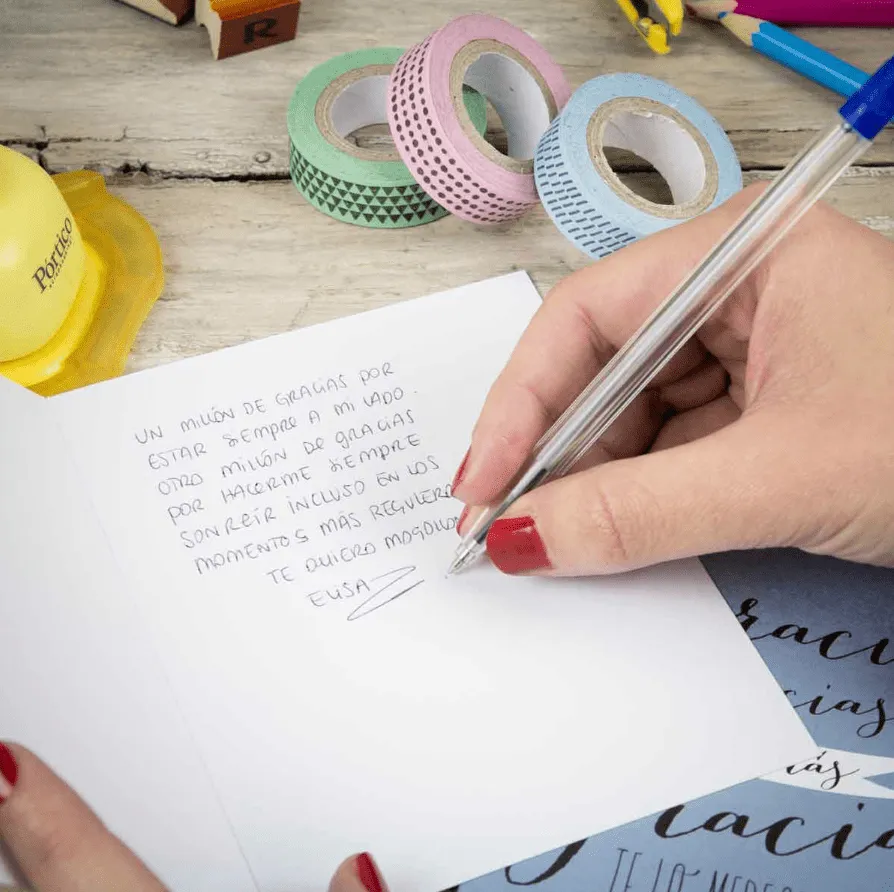 R
Pórtico
UN MILLÓN DE GRACIAS POR
ESTAR SIEMPRE A MI LADO.
OTRO MILLÓN DE GRACIAS
POR HACERME SIEMPRE
SONREÍR INCLUSO EN LOS
MOMENTOS MÁS REGULERO
TE QUIERO MOGOLLON
ELISA
racia
cias
ás
racia
TE LO MERE